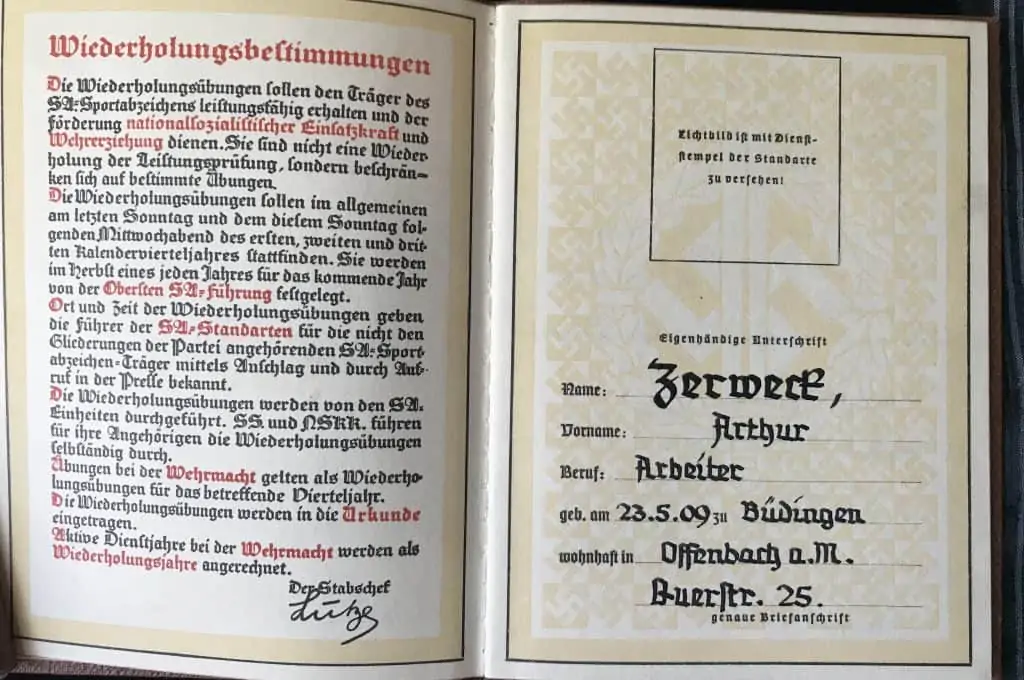 Wiederholungsbestimmungen
Die Wiederholungsübungen sollen den Träger des
SA-Sportabzeichens leistungsfähig erhalten und der
Förderung nationalsozialistischer Einsatzkraft und
Wehrerziehung dienen. Sie sind nicht eine Wieder-
holung der Leistungsprüfung, sondern beschrän-
ken sich auf bestimmte Übungen.
Die Wiederholungsübungen sollen im allgemeinen
am letzten Sonntag und dem diesem Sonntag fol-
genden Mittwochabend des ersten, zweiten und drit-
ten Kalendervierteljahres stattfinden. Sie werden
im Herbst eines jeden Jahres für das kommende Jahr
von der Obersten SA-Führung festgelegt.
Ort und Zeit der Wiederholungsübungen geben
die Führer der SA-Standarten für die nicht den
Gliederungen der Partei angehörenden SA-Sport-
abzeichen-Träger mittels Anschlag und durch Auf-
ruf in der Presse bekannt.
Die Wiederholungsübungen werden von den SA.
Einheiten durchgeführt. SS. und NSKK. führen
für ihre Angehörigen die Wiederholungsübungen
selbständig durch.
Übungen bei der Wehrmacht gelten als Wiederho-
lungsübungen für das betreffende Vierteljahr.
Die Wiederholungsübungen werden in die Urkunde
eingetragen.
Aktive Dienstjahre bei der Wehrmacht werden als
Wiederholungsjahre angerechnet.
Der Stabschef
Lutze
Lichtbild ist mit Dienst-
stempel der Standarte
zu versehen!
Eigenhändige Unterschrift
Name: Zerweck,
Vorname: Arthur
Beruf: Arbeiter
geb. am 23.5.09 zu Büdingen
wohnhaft in Offenbach a.M.
Auerstr. 25.
genaue Briefanschrift